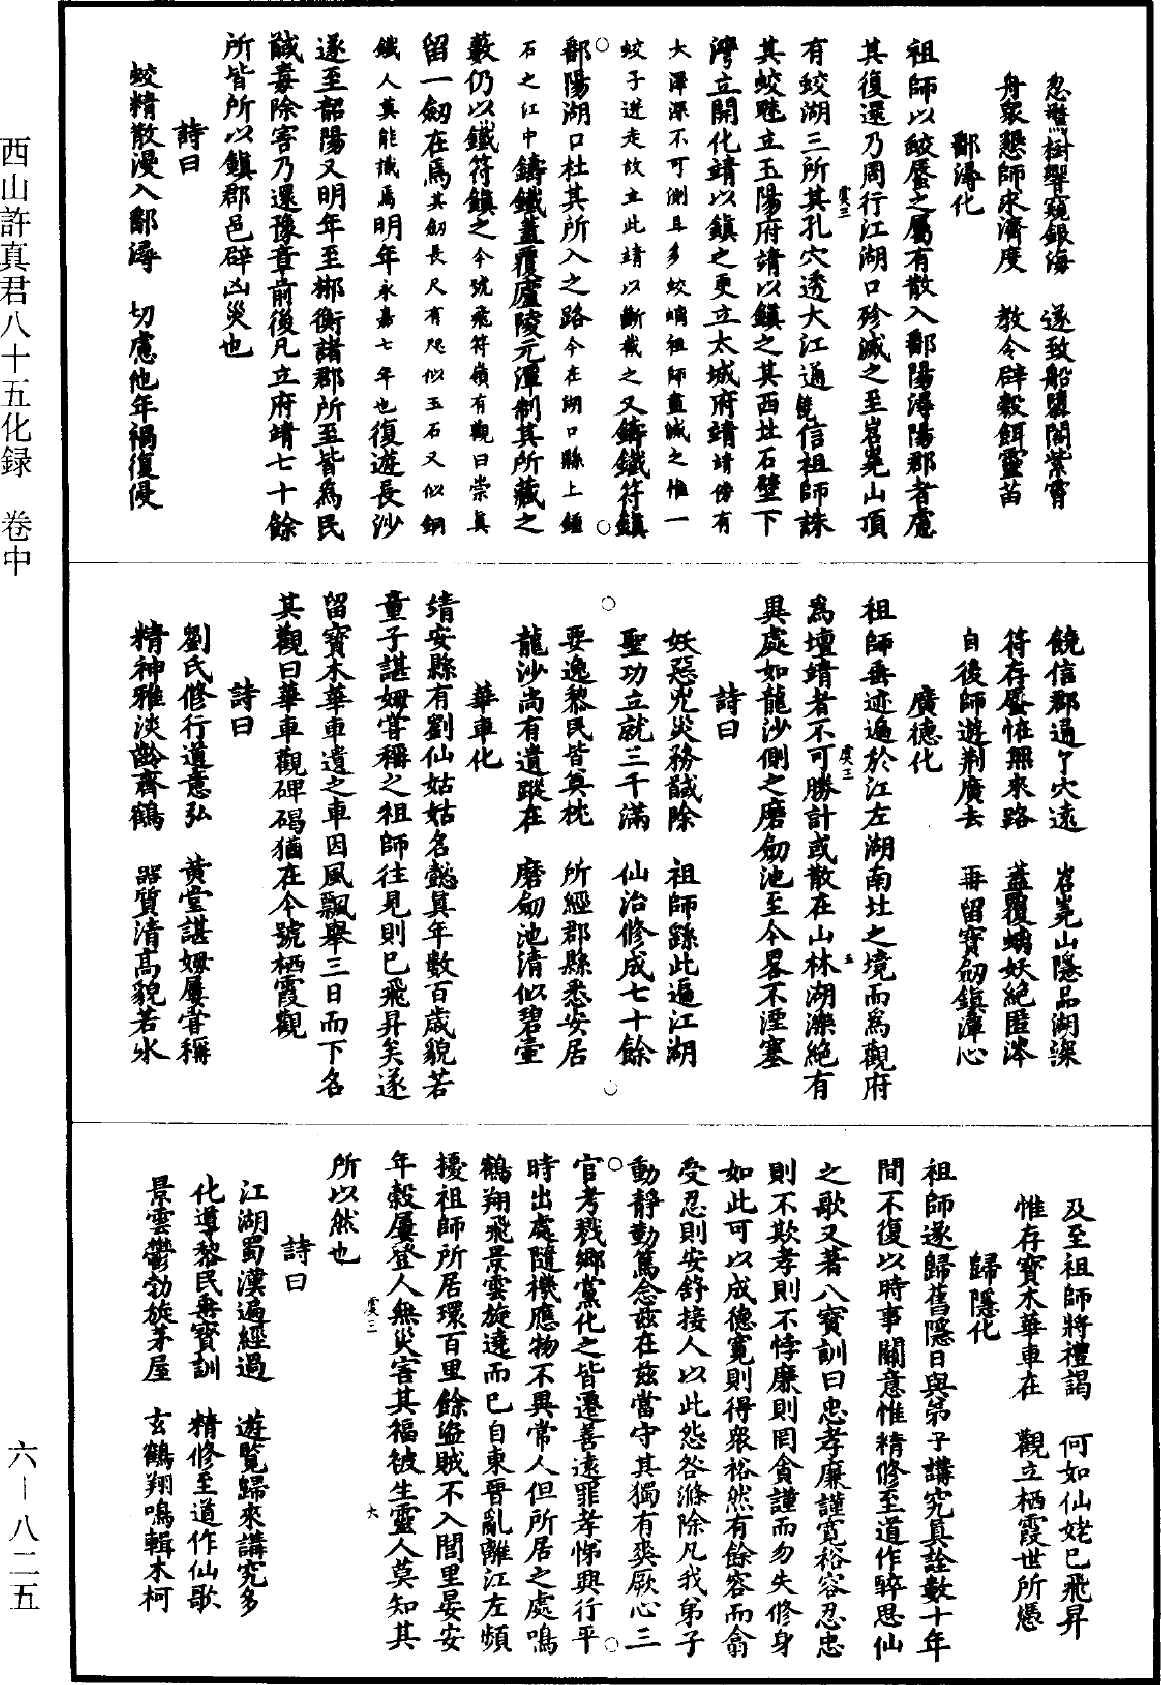 忽驚樹響窺銀海　遂致船翾閣紫霄
舟衆懇師求濟度　教令辟穀餌靈苗
鄱潯化
祖師以蛟蜃之屬有散入鄱陽潯陽郡者慮
其復還乃周行江湖口殄滅之至岧嶤山頂
有蛟湖三所其孔穴透大江通饒信祖師誅
其蛟雖立玉陽府靖以鎮之其西北石壁下
灣立開化靖以鎮之更立太城府靖靖傍有
大潭深不可測且多蛟螭祖師盡滅之惟一
蛟子迸走故立此靖以斷截之又鑄鐵符鎮
鄱陽湖口杜其所入之路今在湖口縣上鍾
石之江中鑄鐵蓋覆廬陵元潭制其所藏之
藪仍以鐵符鎮之今號飛符嶺有觀曰崇真
留一劒在焉其劒長尺有咫似玉石又似銅
鐵人莫能識焉明年永嘉七年也復遊長沙
遂至韶陽又明年至郴衡諸郡所至皆為民
馘毒除害乃還豫章前後凡立府靖七十餘
所皆所以鎮郡邑辟凶災也
詩曰
蛟精散漫入鄱潯　切慮他年禍復侵
饒信郡通丫穴遠　岧嶤山隱品湖深
符存蜃怪無來路　蓋覆螭妖絕匿涔
自後師遊荆廣去　再留寶劒鎮潭心
廣德化
祖師垂迹遍於江左湖南北之境而為觀府
為壇靖者不可勝計或散在山林湖濼絕有
異處如龍沙側之磨劒池至今畧不湮塞
詩曰
妖惡兇災務馘除　祖師蹤此遍江湖
聖功立就三千滿　仙治修成七十餘
要逸黎民皆奠枕　所經郡縣悉安居
龍沙尚有遺蹤在　磨劒池清似碧壺
華車化
靖安縣有劉仙姑姑名懿真年數百歲貌若
童子諶姆嘗稱之祖師往見則已飛昇矣遂
留寶木華車遺之車因風飄舉三日而下名
其觀曰華車觀碑碣猶在今號栖霞觀
詩曰
劉氏修行道意弘　黄堂諶姆屢嘗稱
精神雅淡齡齊鶴　器質清高貌若冰
及至祖師將禮謁　何如仙姥已飛昇
惟存寶木華車在　觀立栖霞世所憑
歸隱化
祖師遂歸舊隱日與弟子講究真詮數十年
間不復以時事關意惟精修至道作醉思仙
之歌又著八寶訓曰忠孝廉謹寛裕容忍忠
則不欺孝則不悖廉則罔貪謹而勿失修身
如此可以成德寛則得衆裕然有餘容而翕
受忍則安舒接人以此怨咎滌除凡我弟子
動靜勤篤念茲在茲當守其獨有爽厥心三
官考戮鄉黨化之皆遷善遠罪孝悌興行平
時出處隨機應物不異常人但所居之處鳴
鶴翔飛景雲旋遶而已自東晉亂離江左頻
擾祖師所居環百里餘盜賊不入閭里晏安
年穀屢登人無災害其福被生靈人莫知其
所以然也
詩曰
江湖蜀漢遍經過　遊覧歸來講究多
化導黎民垂寶訓　精修至道作仙歌
景雲鬱勃旋茅屋　玄鶴翔鳴輯木柯
虞三
虞三
五
虞三
大
西山許真君八十五化録　卷中
六—八二五